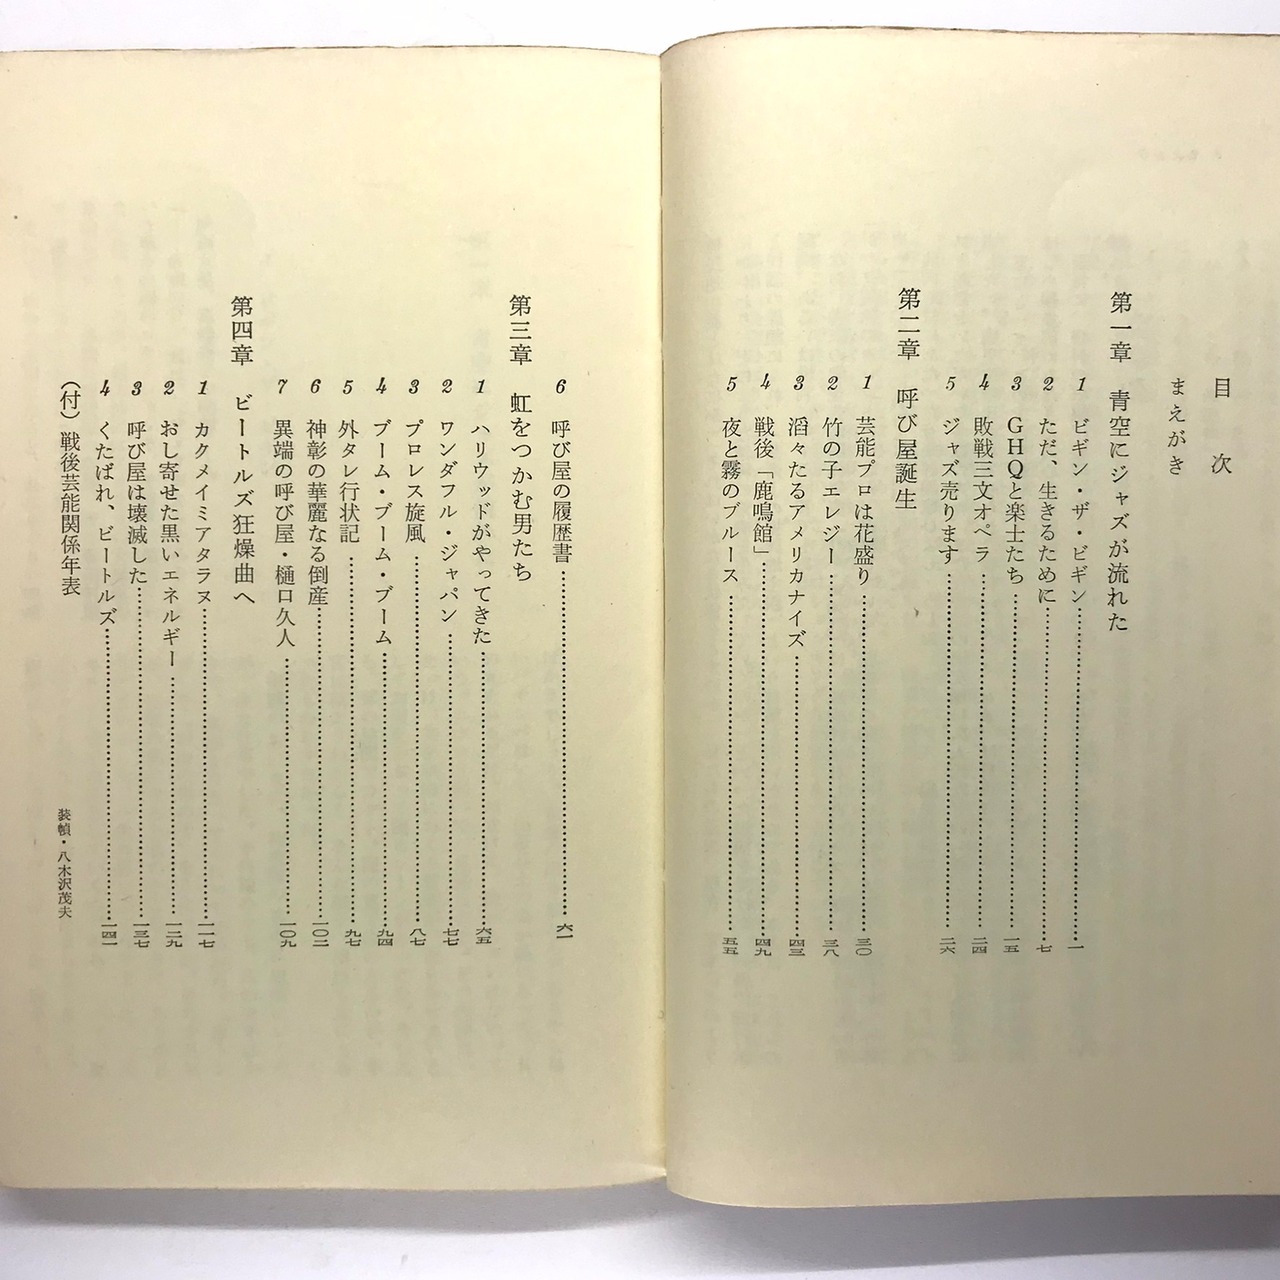 目次
まえがき
第一章 青空にジャズが流れた
1 ビギン・ザ・ビギン……一
2 ただ、生きるために……七
3 GHQと楽士たち……一五
4 敗戦三文オペラ……二四
5 ジャズ売ります……二六
第二章 呼び屋誕生
1 芸能プロは花盛り……三〇
2 竹の子エレジー……三八
3 滔々たるアメリカナイズ……四三
4 戦後「鹿鳴館」……四九
5 夜と霧のブルース……五五
6 呼び屋の履歴書……六一
第三章 虹をつかむ男たち
1 ハリウッドがやってきた……六五
2 ワンダフル・ジャパン……七七
3 プロレス旋風……八七
4 ブーム・ブーム・ブーム……九四
5 外タレ行状記……九七
6 神彰の華麗なる倒産……一〇二
7 異端の呼び屋・樋口久人……一〇九
第四章 ビートルズ狂燥曲へ
1 カクメイミアタラヌ……一一七
2 おし寄せた黒いエネルギー……一二九
3 呼び屋は壊滅した……一三七
4 くたばれ、ビートルズ……一四一
(付)戦後芸能関係年表
装幀・八木沢茂夫